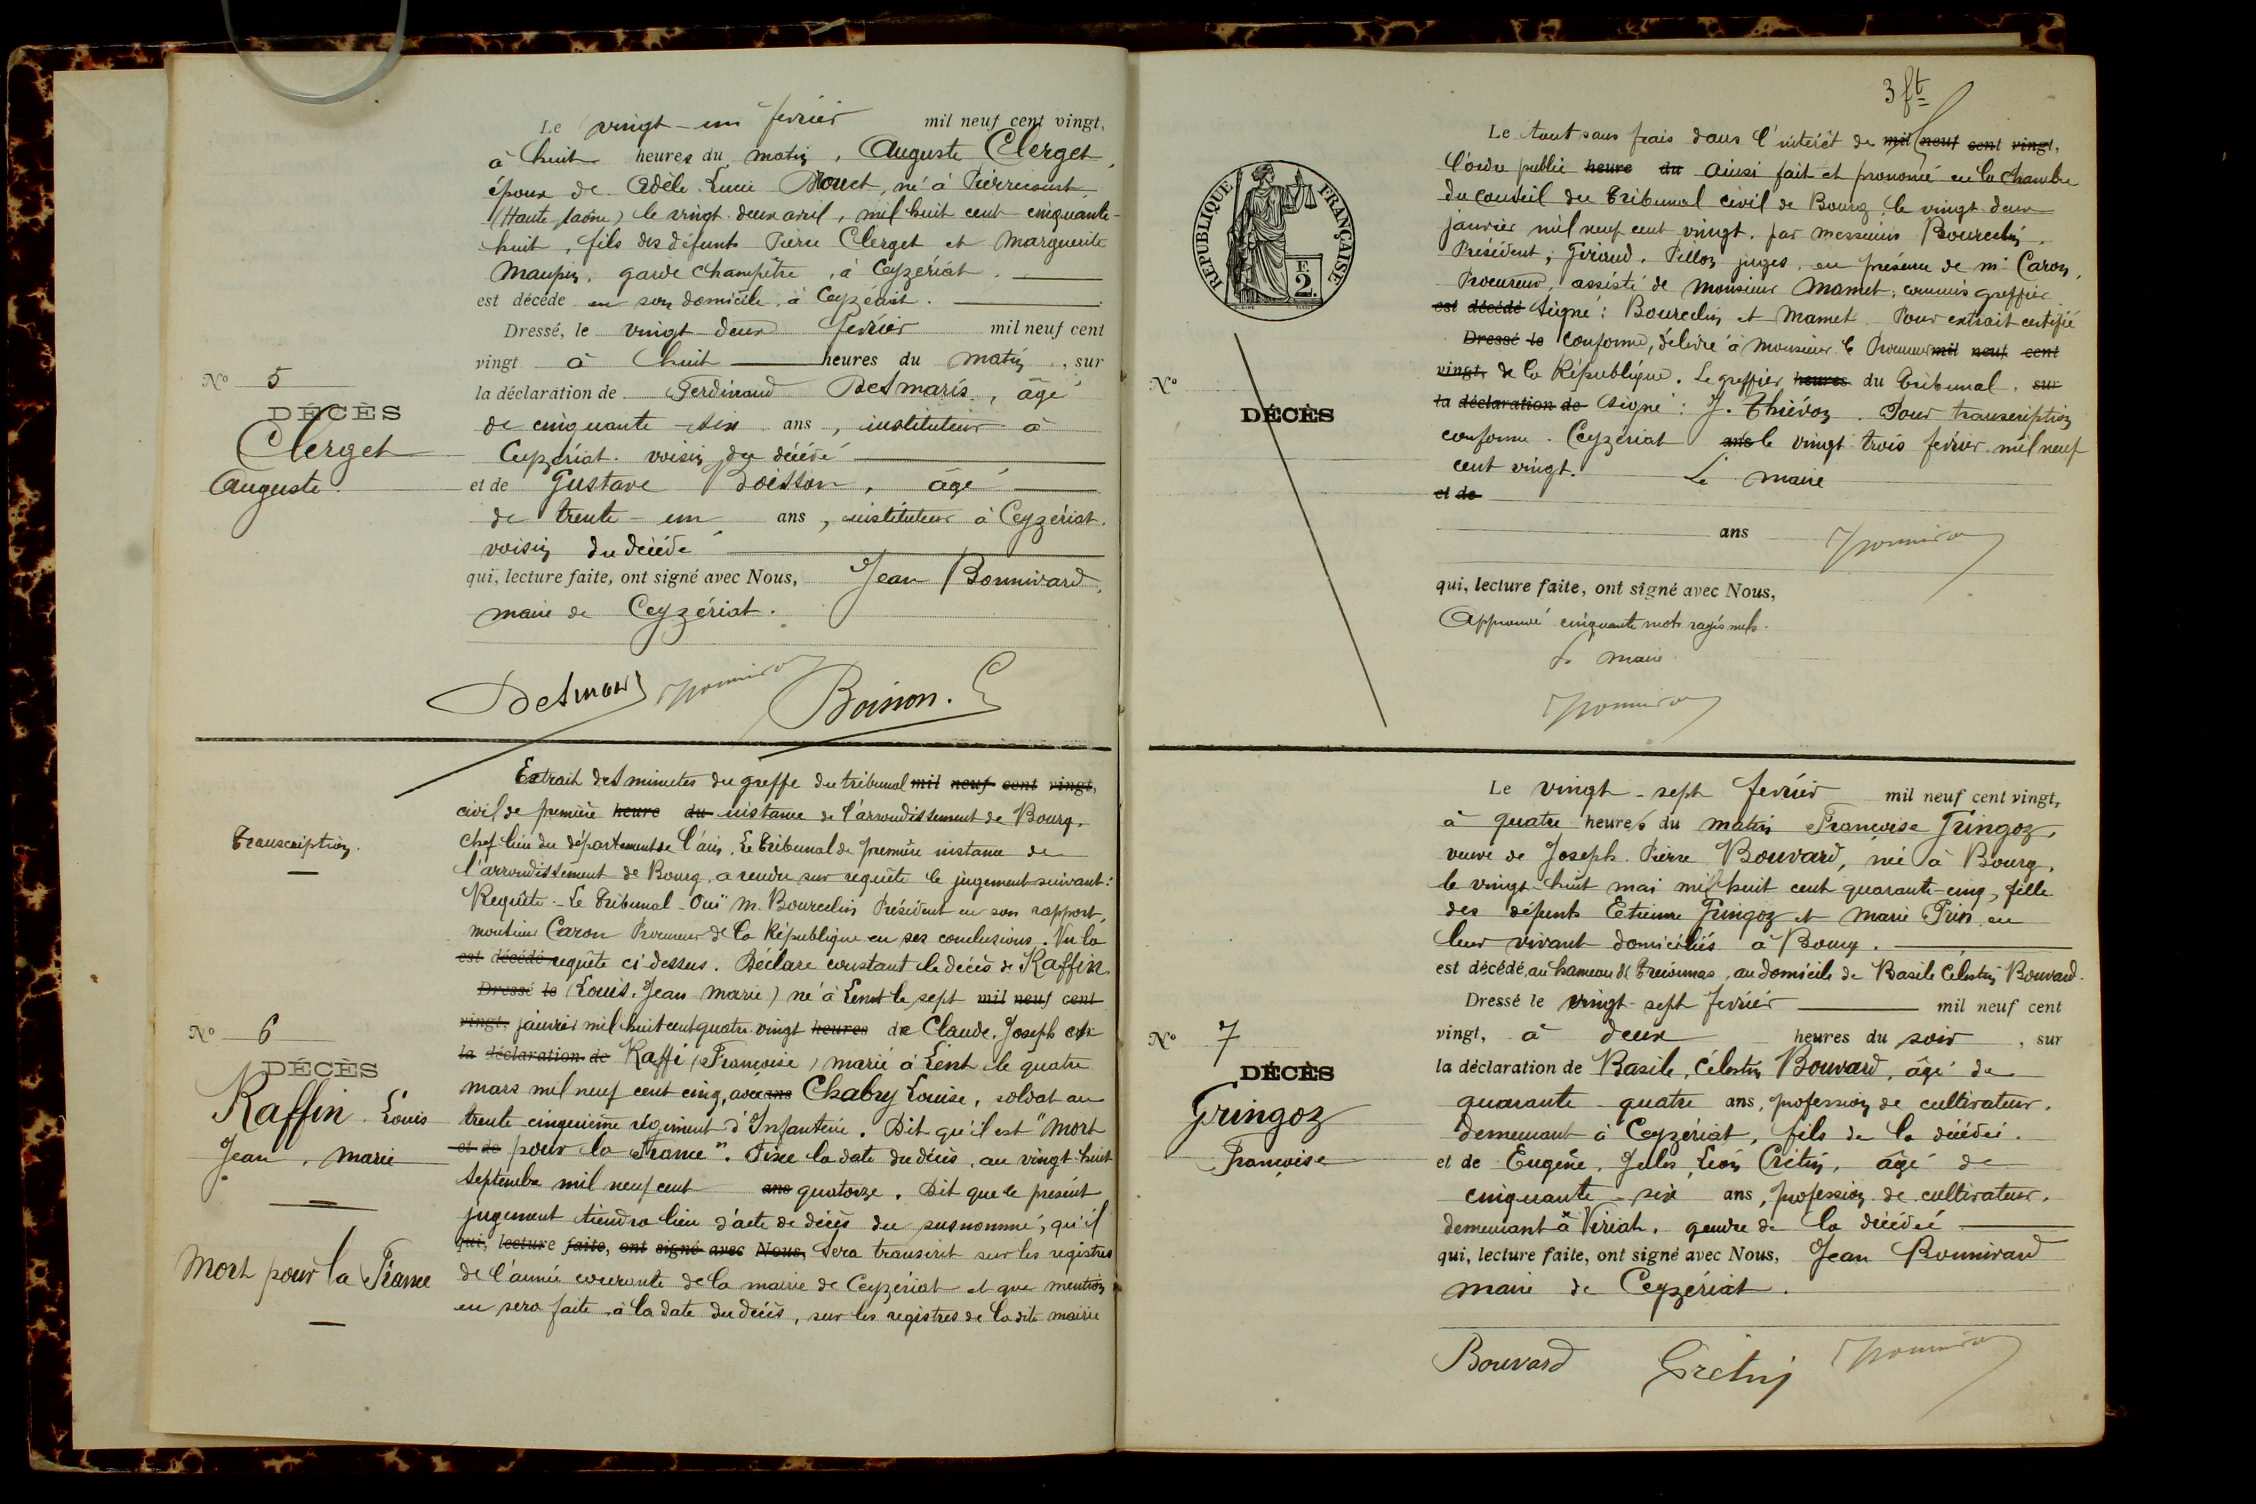 Le vingt-un février mil neuf cent vingt,
à huit heures du matin, Auguste Clerget,
époux de Adèle Lucie Mouet, né à Pierrecourt
(Haute Saône) le vingt-deux avril, mil huit cent cinquante-
huit, fils des défunts Pierre Clerget et Marguerite
Maupin, garde champêtre, à Ceyzériat.
est décédé en son domicile à Ceyzériat.
Dressé, le vingt-deux février mil neuf cent
vingt à huit heures du matin, sur
la déclaration de Ferdinand Desmaris, âgé
de cinquante-six ans, instituteur à
Ceyzériat. voisin du décédé
et de Gustave Boisson, âgé
de trente-un ans, instituteur à Ceyzériat.
voisin du décédé
qui, lecture faite, ont signé avec Nous, Jean Bonnivard,
maire de Ceyzériat.
Nº 5
DÉCÈS
Clerget
Auguste.
Desmaris Boisson.
Extrait des minutes du greffe du tribunal mil neuf cent vingt,
civil de première heure du instance de l'arrondissement de Bourg,
chef lieu du département de l'ain. Le Tribunal de première instance de
l'arrondissement de Bourg, a rendu sur requête le jugement suivant:
Requête - Le Tribunal - Ouï M. Bourcelin Président en son rapport,
monsieur Caron Procureur de la République en ses conclusions. Vu la
est décédé requête ci dessus. Déclare constant le décès de Raffin
Dressé le (Louis, Jean Marie) né à Lent le sept mil neuf cent
vingt, janvier mil huit cent quatre vingt heures de Claude, Joseph et
la déclaration de Raffi (Françoise) marié à Lent le quatre
mars mil neuf cent cinq, avec ans Chabry Louise, soldat au
trente cinquième régiment d'Infanterie. Dit qu'il est "Mort
et de pour la France". Fixe la date du décès, au vingt-huit
Septembre mil neuf cent ans quatorze. Dit que le présent
jugement tiendra lieu d'acte de décès du susnommé, qu'il
qui, lecture faite, ont signé avec Nous, sera transcrit sur les registres
de l'année courante de la mairie de Ceyzériat et que mention
en sera faite à la date du décès, sur les registres de la dite mairie
Transcription.
Nº 6
DÉCÈS
Raffin Louis
Jean, Marie
Mort pour la France
3 ft
RÉPUBLIQUE FRANÇAISE
F.
2.
Le tout sans frais dans l'intérêt de mil neuf cent vingt,
l'ordre public heure du ainsi fait et prononcé en la chambre
du conseil du Tribunal civil de Bourg, le vingt-deux
janvier mil neuf cent vingt. par messieurs Bourcelin,
Président; Giriud, Pillon juges, en présence de mr Caron,
Procureur, assisté de monsieur Mamet, commis greffier.
est décédé Signé: Bourcelin et Mamet. Pour extrait certifié
Dressé le conforme, délivré à Monsieur le Procureur mil neuf cent
vingt, de la République. Le greffier heures du Tribunal, sur
la déclaration de signé: J. Thiévon. Pour transcription
conforme. Ceyzériat ans le vingt trois février mil neuf
cent vingt. Le maire
et de
ans
qui, lecture faite, ont signé avec Nous,
Approuvé cinquante mots rayés nuls.
Le maire
Nº
DÉCÈS
Le vingt-sept février mil neuf cent vingt,
à quatre heures du matin Françoise Gringoz,
veuve de Joseph Pierre Bouvard, né à Bourg,
le vingt-huit mai mil huit cent quarante-cinq, fille
des défunts Etienne Gringoz et Marie Prin en
leur vivant domiciliés à Bourg.
est décédé, au hameau de Treconnas, au domicile de Basile Célestin Bouvard.
Dressé le vingt-sept février mil neuf cent
vingt, à deux heures du soir, sur
la déclaration de Basile, Célestin Bouvard, âgé de
quarante-quatre ans, profession de cultivateur.
demeurant à Ceyzériat, fils de la décédée.
et de Eugène, Jules, Léon Crétin, âgé de
cinquante-six ans, profession de cultivateur.
demeurant à Viriat, gendre de la décédée
qui, lecture faite, ont signé avec Nous, Jean Bonnivard
maire de Ceyzériat.
Nº 7
DÉCÈS
Gringoz
Françoise
Bouvard Cretin